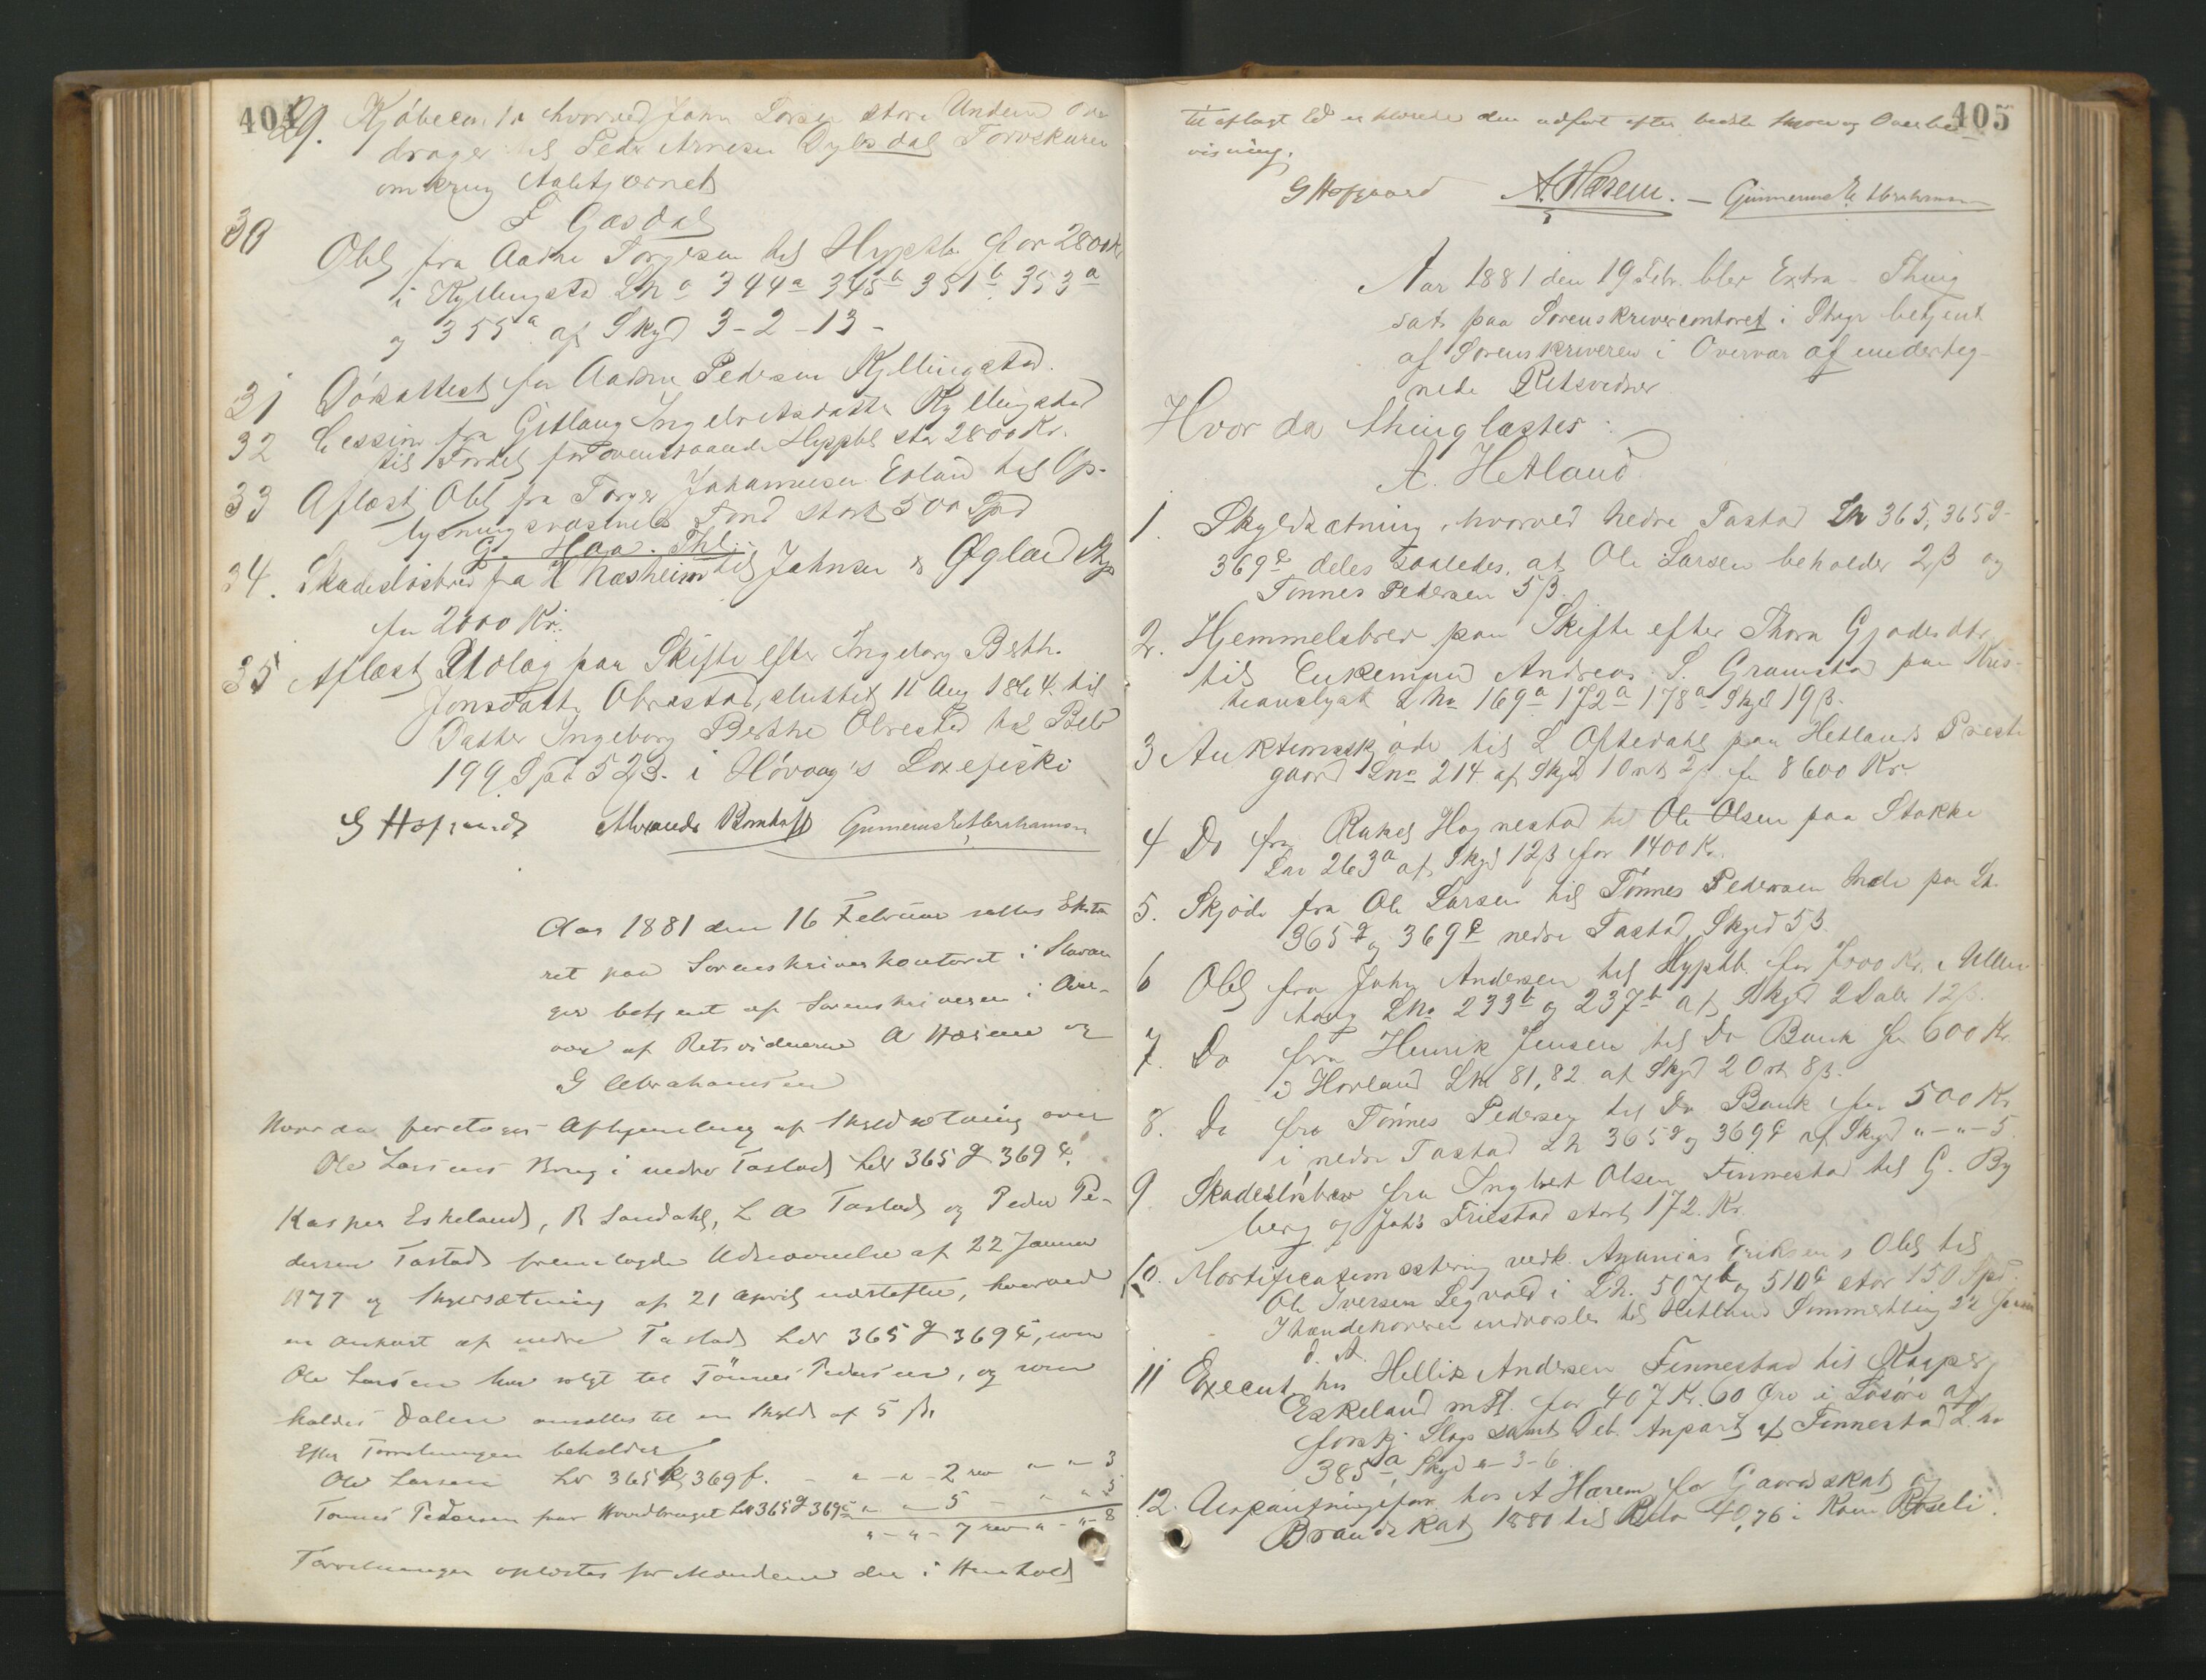 404
29. Kjøbecon hvorved John Larsen store Undem Over
drager til Peder Arnesen Dylsdal Torvskuren
omkring
F Gjesdal
30
Obl fra Aadne Torgersen til Hypthb for 2800 Kr
i Kyllingstad Lno 344a 345b 351b 353a
og 355a af Skyld 3-2-13-
31 Dødsattest for Aadne Pedersen Kyllingstad.
32 Cession fra Gitlaug Ingebretsdatter Kyllingstad
til Fordel for ovenstaaende Hypthb stor 2800 Kr.
33 Aflæst Obl fra Torger Johannesen Eoland til Op-
lysningsvæsenets Fond stort 500 Spd
G. Haa. Thl.
34. Skadesløsbrev fra H Næsheim til Jahnsen & Øglænd
for 2000 Kr.
35 Aflæst Udlæg paa Skifte efter Ingeborg Berth.
Jonsdatter Obrestad, sluttet 11 Aug 1864. til
Datter Ingeborg Berthe Obrestad for Beløb
199 Spd 52 β. i Løxefiski
G Hofgaard Gunnerius E Abrahamsen
Aar 1881 den 16 Februar sattes Extra
ret paa Sorenskriverkontoret i Stavan
ger betjent af Sorenskriveren i Over-
vær af Retsvidnerne A Hærem og
G Abrahamsen
Hvor da foretoges Afhjemling af Skyldsætning over
Ole Larsens Brug i nedre Tastad Lno 365 g 369 e.
Kasper Eskeland, R Sandahl, L A Tastad og Peder Pe-
dersen Tastad fremlagde Udnævnelse af 22 Januar
1877 og Skyldsætning af 21 April næstefter, hvorved
en anpart af nedre Tastad Lno 365 g 369 e, som
Ole Larsen har solgt til Tønnes Pedersen, og som
kaldes Dalen ansattes til en Skyld af 5 β.
Efter Forretningen beholder
Ole Larsen Lno 365 369 f. - „ - „ - 2 rev „ - „ 3
Tønnes Pedersen for Hovedbruget Lno 365 g 369 e „ „ 5 - „ „ 5
„ - „ - 7 rev „ - „ - 8
Forretningen oplæstes for Mændene der i Henhold
405
til aflagt Ed erklærede den udført efter bedste Skjøn og Overbe
visning.
G Hofgaard A. Hærem. - Gunnerius E. Abrahamsen
Aar 1881 den 19 Febr. blev Extra-Thing
sat paa Sorenskrivercontoret i Stvgr betjent
af Sorenskriveren i Overvær af underteg-
nede Retsvidner
Hvor da thinglæstes:
A. Hetland.
1. Skyldsætning, hvorved nedre Tastad Ln 365, 365 g-
369 e deles saaledes, at Ole Larsen beholder 2 β og
Tønnes Pedersen 5 β.
2. Hjemmelsbrev paa Skifte efter Thora Gjødesdtr
til Enkemand Andreas S. Gramstad paa Kris-
tianslyst Lno 169a 172a 178a Skyld 19 β.
3 Auktionsskjøde til L Oftedahl paa Hetlands Præste
gaard Lno 214. af Skyld 1 Ort 2 β for 8600 Kr.
4 Do fra Rakel Hognestad til Ole Olsen paa Stokke
Lno 263a af Skyld 12 β for 1400 Kr.
5. Skjøde fra Ole Larsen til Tønnes Pedersen Inde paa Ln.
365 g og 369 e nedre Tastad Skyld 5 β.
6 Obl fra John Andersen til Hypthb. for 7000 Kr. i Ullen
haug Lno 233b og 237b af Skyld 2 Daler 12 β.
7. Do fra Henrik Jensen til Do Bank for 600 Kr
i Hovland Lno 81, 82. af Skyld 2 Ort 8 β.
8. Do fra Tønnes Pedersen til Do Bank for 500 Kr
i nedre Tastad Ln 365 g og 369 e af Skyld „ - „ - 5.
9 Skadesløsbrev fra Ingbret Olsen Finnestad til G. By
berg og Johs Friestad stort 172. Kr.
10. Mortifications stevning vedk. Ananias Eriksens Obl til
Ole Iversen Legvold i Ln. 507 b og 510 b stor 150 Spd.
Ihændehaveren indvarsles til Hetland Sommerting 22 Juni
d. A.
11 Execut. hos Hellik Andersen Finnestad til Kasper
Eskeland m. fl. for 407 Kr. 60 Øre i Løsøre af
forskj. Slags samt Deb. Anpart af Finnestad L. no
385 a, Skyld „ - 3 - 6.
12. Udpantningsforr. hos A Hærem for Gaardskat og
Brandskat 1880 til Beløb 40,76 i Roseli.